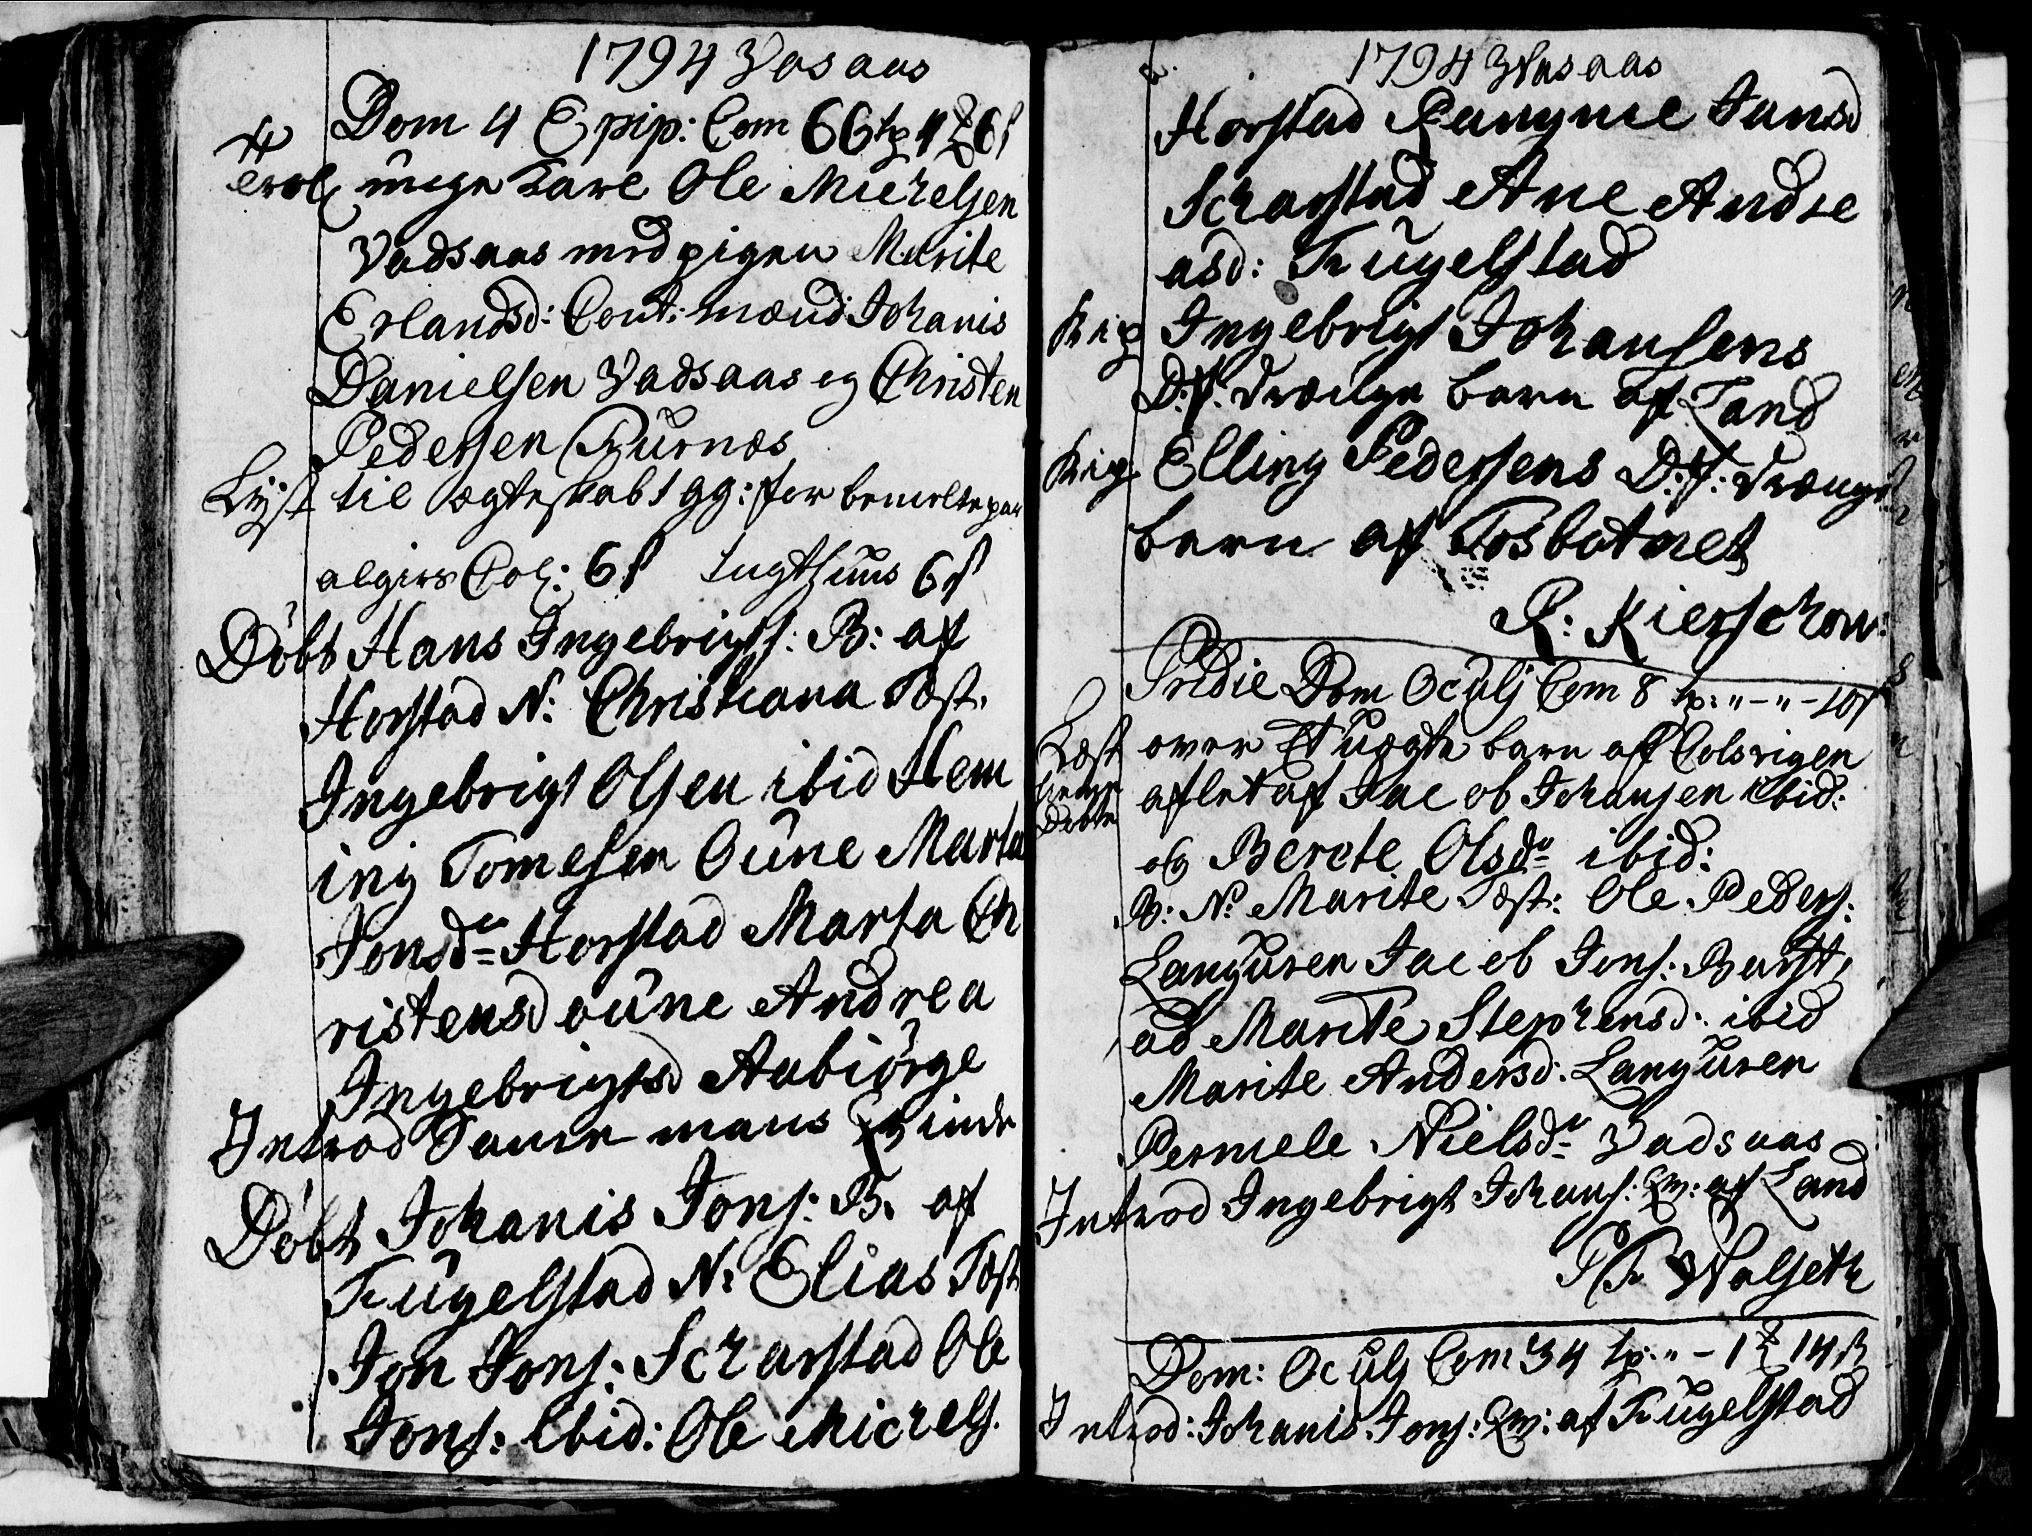 1794 Vasaas
Dom 4 Epip: Com 66 tp 4 6 s
Trol unge Karl Ole Michelsen
Vadsaas med pigen Marite
Erlandsd: Cout: mænd Johanis
Danielsen Vadsaas og Christen
Pedersen Furnæs
Lyst til ægteskab 1 gg: for bemelte par
algivs Col: 6 s tugthuus 6 s
Döbt Hans Ingebrigts: B: af
Horstad N: Christiana Tæst.
Ingebrigt Olsen ibid Hem
ing Tomesen Oune Marta
Jonsd Horstad Marta Ch
ristensd oune Andrea
Ingebrigtsd Aabiörge
Introd Samme mans Qvinde
Döbt Johanis Jons: B. af
Fugelstad N: Elias Tæst
Jon Jons: Scharstad Ole
Jons: ibid: Ole Michels.
1794 Wasaas
Horstad Jansd
Scharstad Ane Andre
asd: Fugelstad
Kig Ingebrigt Johansens
D: f: drænge barn af Land
Kig Elling Pedersens D: f: drænge
barn af Tosbotnet
P: Kierschow:
Pridie Dom Oculj Com 8 tp: " - " - 10 s
Læst over Et uægte barn af Colsvigen
hiemme aflet af Jacob Johansen ibid:
Döbte og Berete Olsd ibid:
B: N: Marite Tæst: Ole Peders:
Languren Jacob Jons: Barst,
ad Marite Stephensd: ibid
Marite Andersd: Languren
Pernele Nielsd Vadsaas
Introd Ingebrigt Johans: Qv: af Land
P F Walseth
Dom: Oculj Com 34 tp: " - 1 14 s
Introd: Johanis Jons: Qv: af Fugelstad